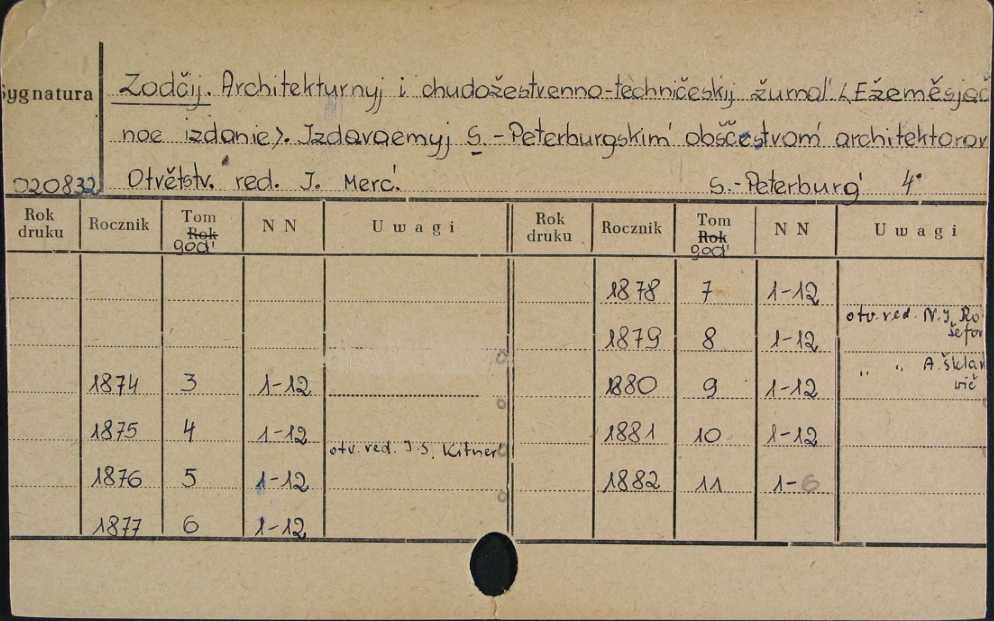 Sygnatura
Zodčij. Architekturnyj i chudožestvenno-techničeskij žurnal' (Ežeměsjač
noe izdanie). Izdavaemyj S.-Peterburgskim' obščestvom' architektorov
020832 Otvětstv. red. I. Merc'. S.-Peterburg' 4°
Rok druku Rocznik Tom Rok god' N N Uwagi Rok druku Rocznik Tom Rok god' N N Uwagi
1878 7 1-12
otv. red. N.I. Ro
šefor
1879 8 1-12
1874 3 1-12 1880 9 1-12 " " A. Šklar
vič
1875 4 1-12 1881 10 1-12
otv. red. I.S. Kitner
1876 5 1-12 1882 11 1-6
1877 6 1-12